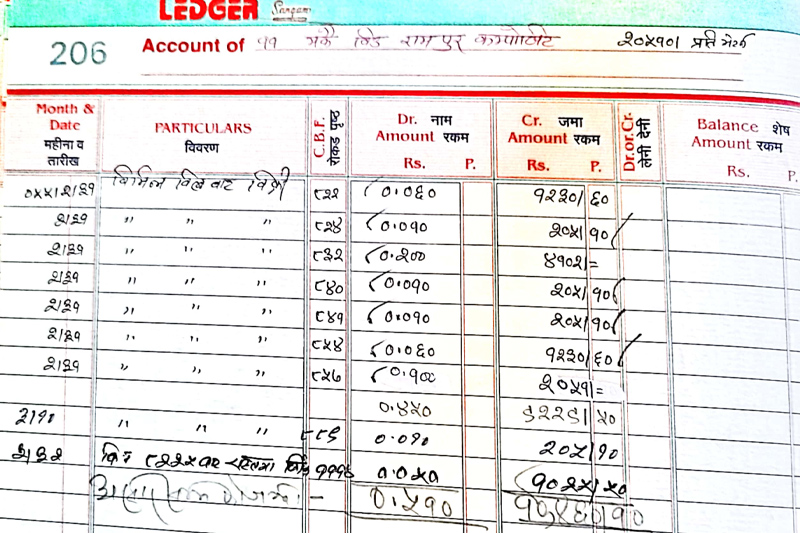 LEDGER Sangam
206 Account of ११ मकै बिउ रामपुर कम्पोजिट २०५१०। प्रति
Month & Date महीना व तारीख PARTICULARS विवरण C.B.F. रोकड पृष्ठ Dr. नाम Amount रकम Rs. P. Cr. जमा Amount रकम Rs. P. Dr.or.Cr. लेनी देनी Balance शेष Amount रकम Rs. P.
२।३१ बिभिन्न बिल बाट बिक्री ८२२ ०.०६० १२३०।६०
२।३१ " " " ८२४ ०.०१० २०५।१०
२।३१ " " " ८३२ ०.२०० ४१०२।=
२।३१ " " " ८४० ०.०१० २०५।१०
२।३१ " " " ८४१ ०.०१० २०५।१०
२।३१ " " " ८५४ ०.०६० १२३०।६०
२।३१ " " " ८५७ ०.१०० २०५१।=
०.४५० ९२२९।५०
" " " ८८९ ०.०१० २०५।१०
२।३२ १११४ ०.०५० १०२५।५०
०.५१० १०४६०।१०